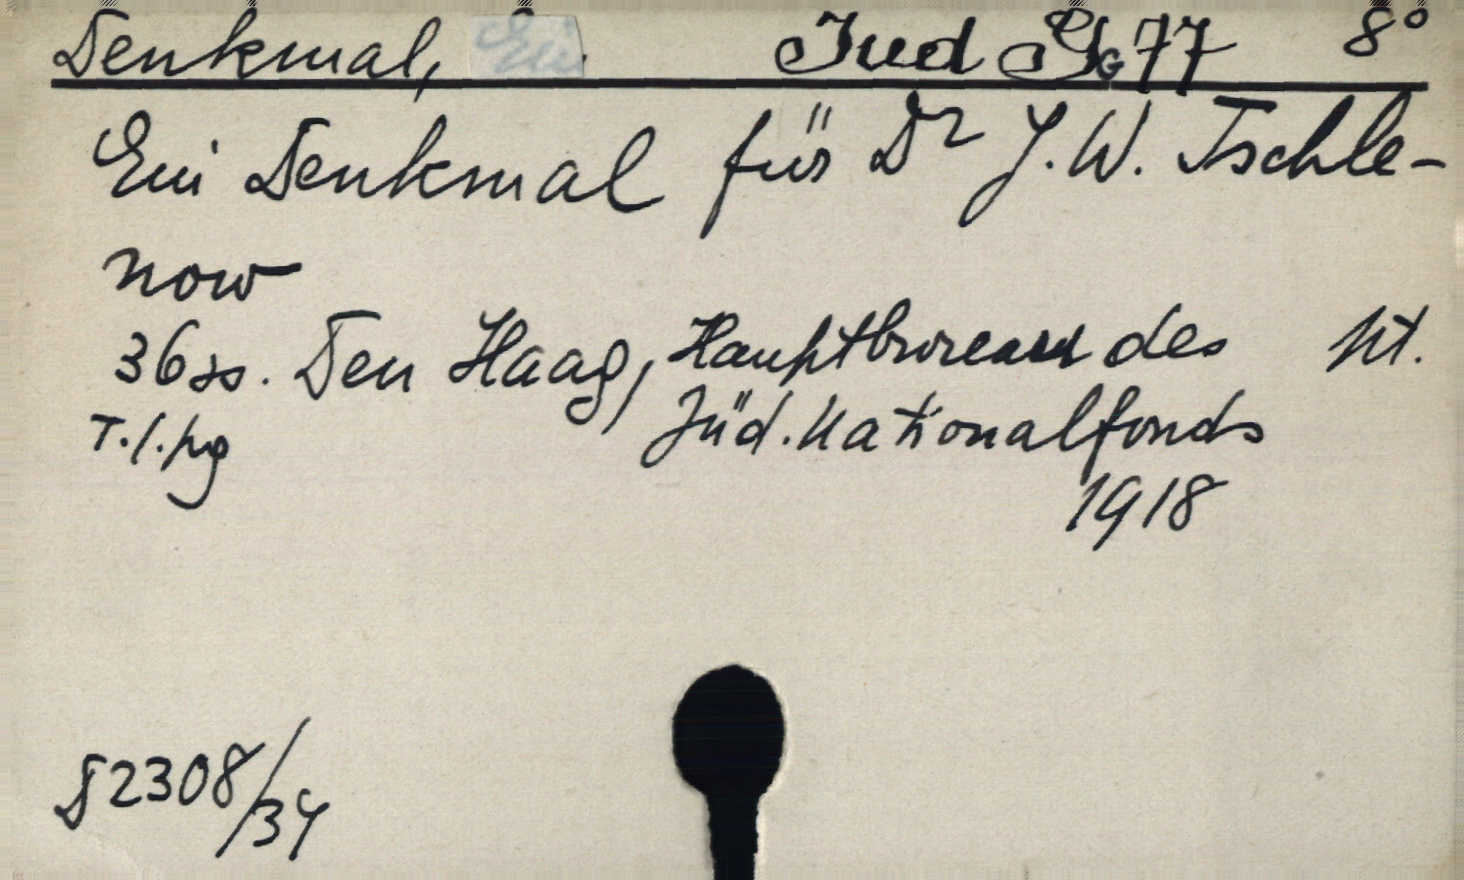 Denkmal, Ein Jud Pg 77 8°
Ein Denkmal für Dr J.W. Tschle-
now
36 ss. Den Haag, Hauptbureau des
Jüd. Nationalfonds
1918
T./.
2308/34